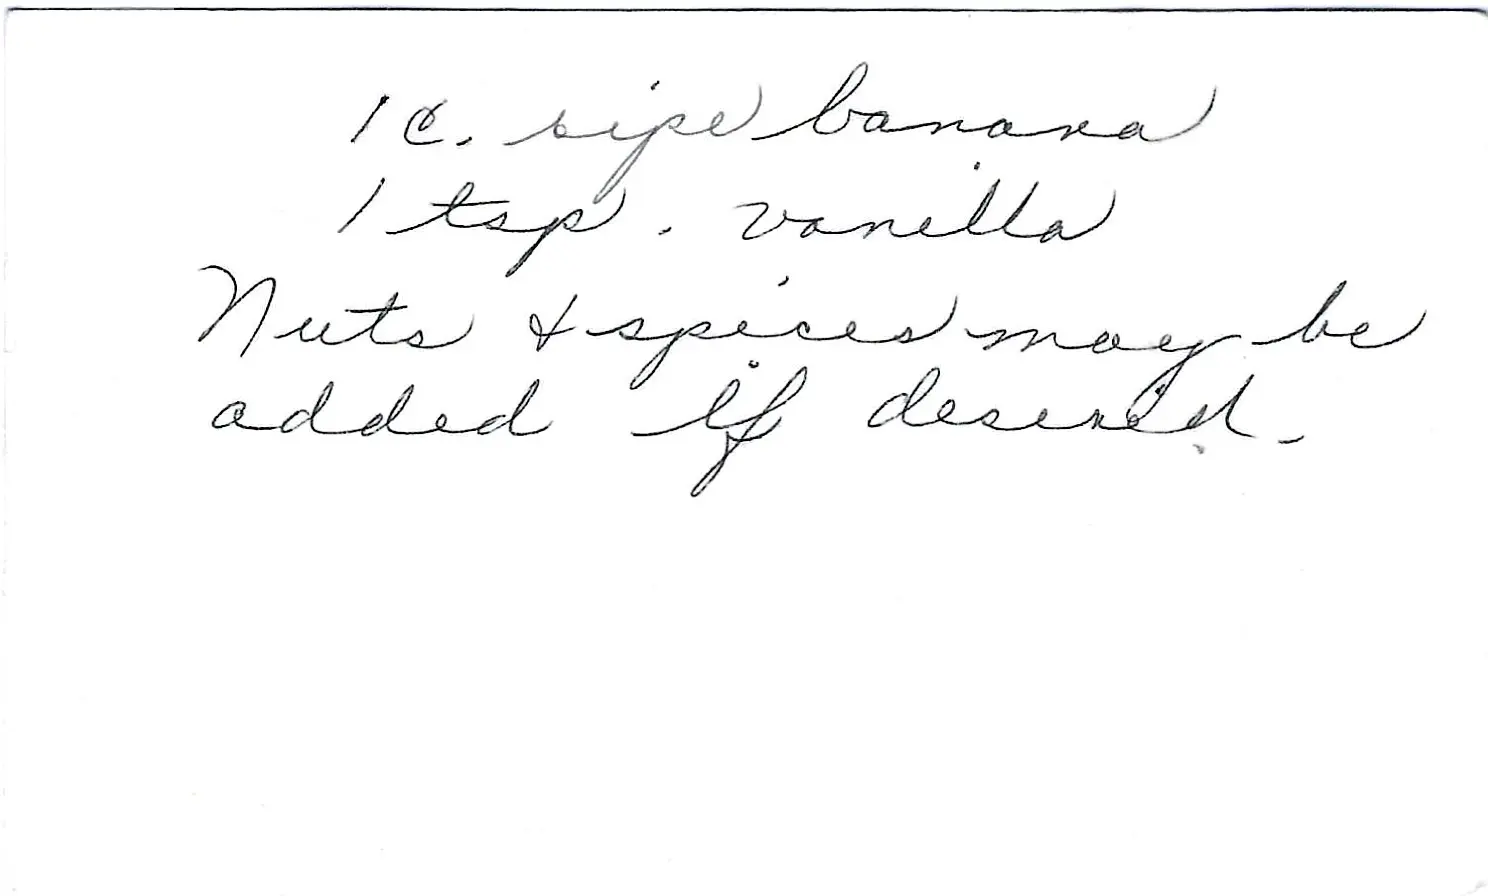 1 c. ripe banana
1 tsp. vanilla
Nuts & spices may be
added if desired.